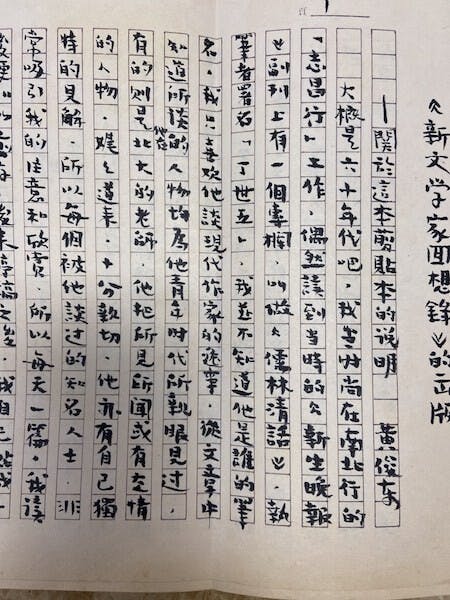 《新文学家回想錄》的正版
—關於這本剪貼本的说明　黄俊东
大概是六十年代吧，我当时尚在南北行的
「志昌行」工作，偶然读到当時的《新生晚報
》副刊上有一個專欄，叫做《儒林清話》，執
筆者署名「丁世五」，我並不知道他是誰的筆
名，我只喜欢他談現代作家的逸事，從文章中
知道所談的人物均属他青年时代所親眼見过，
他在
有的則是北大的老師，他把所見所聞或有交情
的人物，娓々道来，十分親切，他亦有自己獨
特的見解，所以每個被他談过的知名人士，非
常吸引我的注意和欣賞，所以每天一篇，我讀